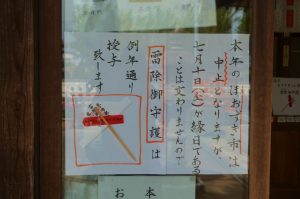 本年のほおづき市は
中止となりますが
七月十日(金)が縁日である
ことは変わりませんので
雷除御守護は
例年通り
授与
致します
本
お